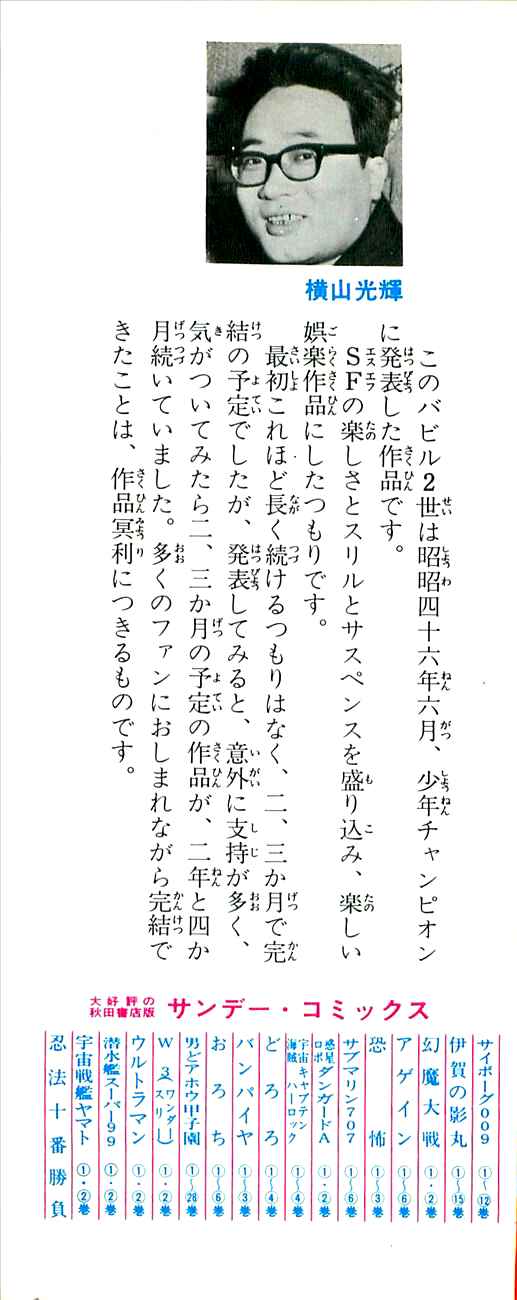 横山光輝
このバビル2世は昭昭四十六年六月、少年チャンピオン
に発表した作品です。
SFの楽しさとスリルとサスペンスを盛り込み、楽しい
娯楽作品にしたつもりです。
最初これほど長く続けるつもりはなく、二、三か月で完
結の予定でしたが、発表してみると、意外に支持が多く、
気がついてみたら二、三か月の予定の作品が、二年と四か
月続いていました。多くのファンにおしまれながら完結で
きたことは、作品冥利につきるものです。
大好評の
秋田書店版
サンデー・コミックス
サイボーグ009 ①〜⑫巻
伊賀の影丸 ①〜⑮巻
幻魔大戦 ①・②巻
アゲイン ①〜⑥巻
恐怖 ①〜③巻
サブマリン707 ①〜⑥巻
惑星ロボ ダンガードA ①・②巻
宇宙キャプテン海賊ハーロック ①〜④巻
どろろ ①〜④巻
バンパイヤ ①〜③巻
おろち ①〜⑥巻
男どアホウ甲子園 ①〜㉘巻
W3(ワンダースリー) ①・②巻
ウルトラマン ①・②巻
潜水艦スーパー99 ①・②巻
宇宙戦艦ヤマト ①・②巻
忍法十番勝負